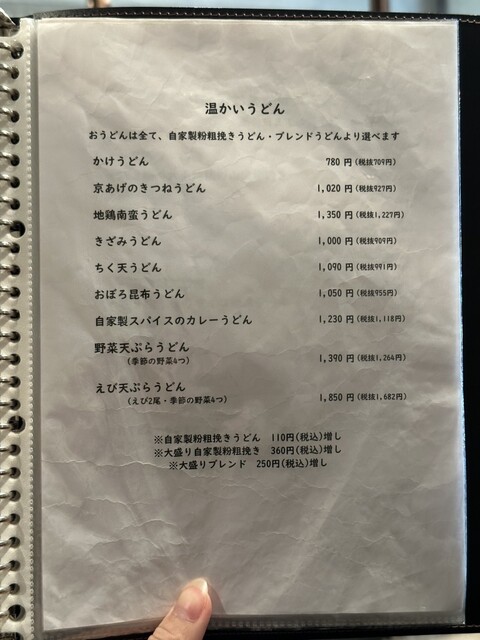 温かいうどん
おうどんは全て、自家製粉粗挽きうどん・ブレンドうどんより選べます
かけうどん 780 円(税抜709円)
京あげのきつねうどん 1,020 円(税抜927円)
地鶏南蛮うどん 1,350 円(税抜1,227円)
きざみうどん 1,000 円(税抜909円)
ちく天うどん 1,090 円(税抜991円)
おぼろ昆布うどん 1,050 円(税抜955円)
自家製スパイスのカレーうどん 1,230 円(税抜1,118円)
野菜天ぷらうどん 1,390 円(税抜1,264円)
(季節の野菜4つ)
えび天ぷらうどん 1,850 円(税抜1,682円)
(えび2尾・季節の野菜4つ)
※自家製粉粗挽きうどん 110円(税込)増し
※大盛り自家製粉粗挽き 360円(税込)増し
※大盛りブレンド 250円(税込)増し